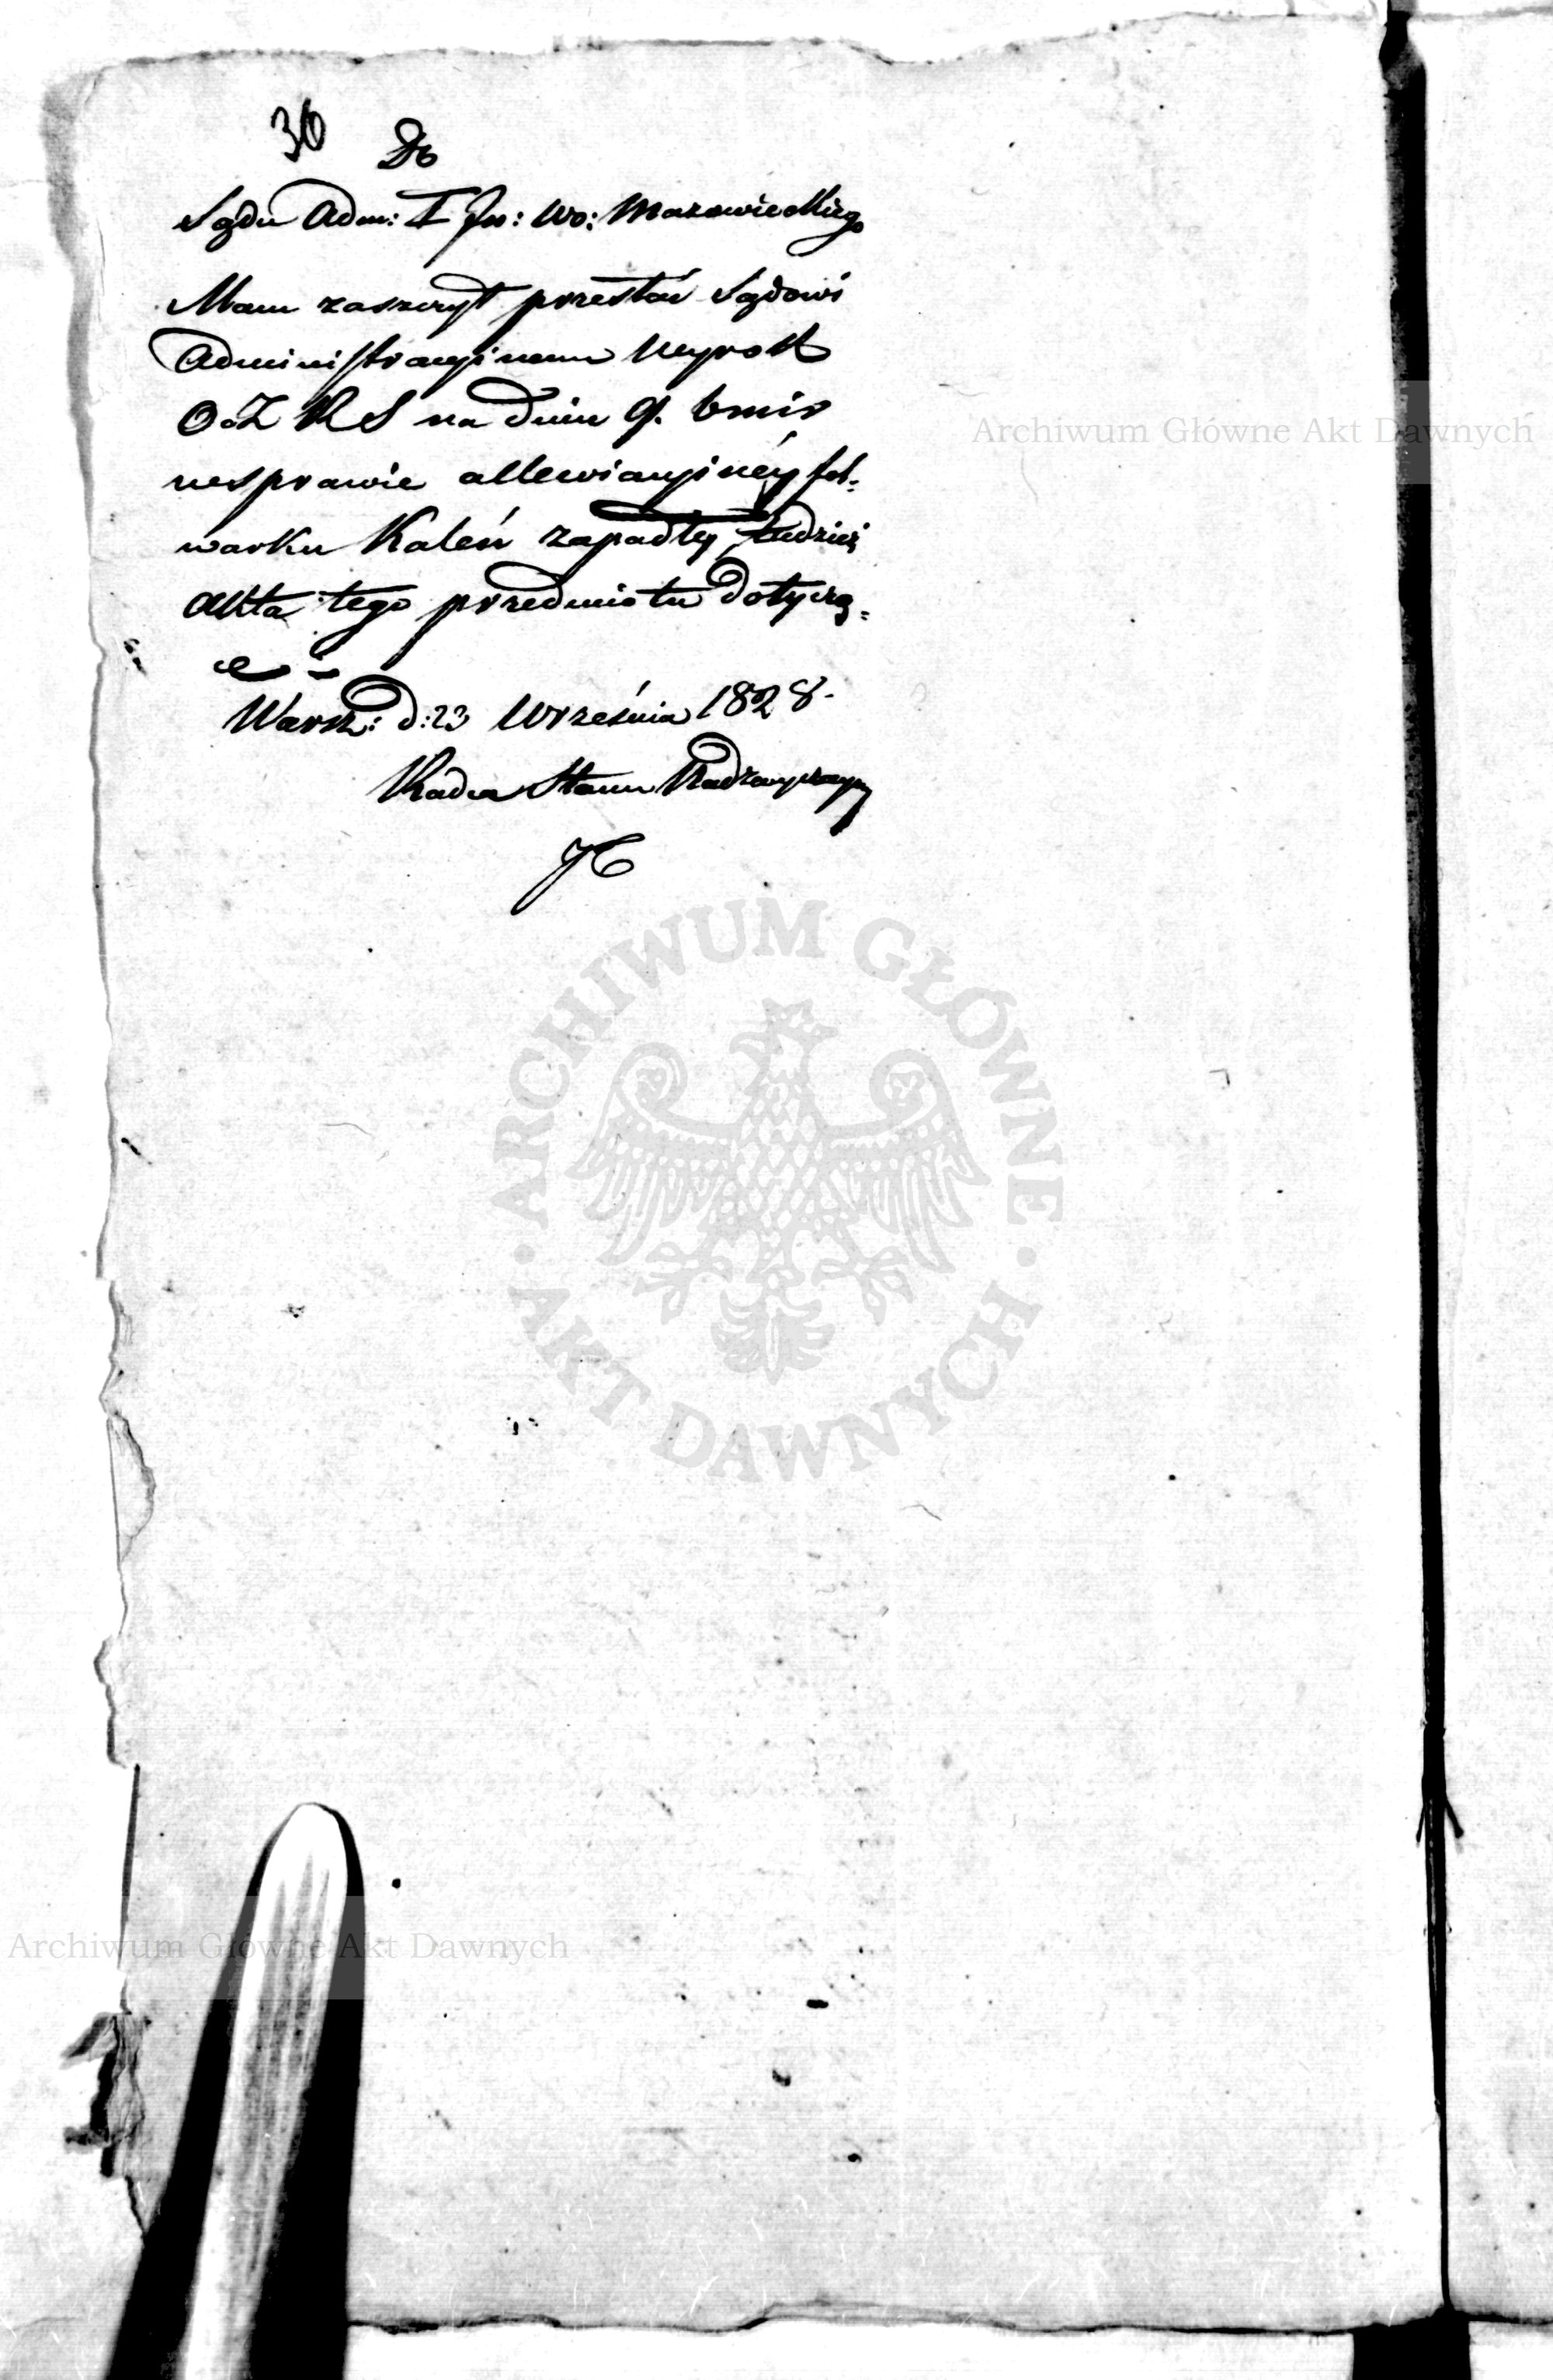 36 Do
Sądu Adm: I In: Wo: Mazowieckiego
Mam zaszczyt przesłać Sądowi
Administracyinemu Wyrok
O.Z RS na dniu 9. bmir
wsprawie allewiacyinéy fol=
warku Kaleń zapadły, tudzież
Akta tego przedmiotu dotyczą=
ce
Warsz: d: 23 Września 1828.
Radca Stanu Nadzwyczayny
Archiwum Główne Akt Dawnych
ARCHIWUM GŁÓWNE AKT DAWNYCH
Archiwum Główne Akt Dawnych